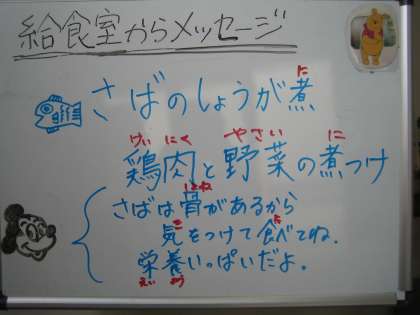 給食室からメッセージ
に
さばのしょうが煮
けい にく やさい に
鶏肉と野菜の煮つけ
ほね
さばは骨があるから
き た
気をつけて食べてね.
栄養いっぱいだよ.
えい よう